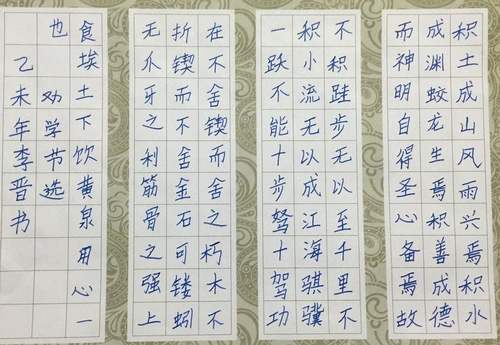 积土成山风雨兴焉积水
成渊蛟龙生焉积善成德
而神明自得圣心备焉故
不积跬步无以至千里不
积小流无以成江海骐骥
一跃不能十步驽十驾功
在不舍锲而舍之朽木不
折锲而不舍金石可镂蚓
无爪牙之利筋骨之强上
食埃土下饮黄泉用心一
也 劝学节选
乙未年李晋书